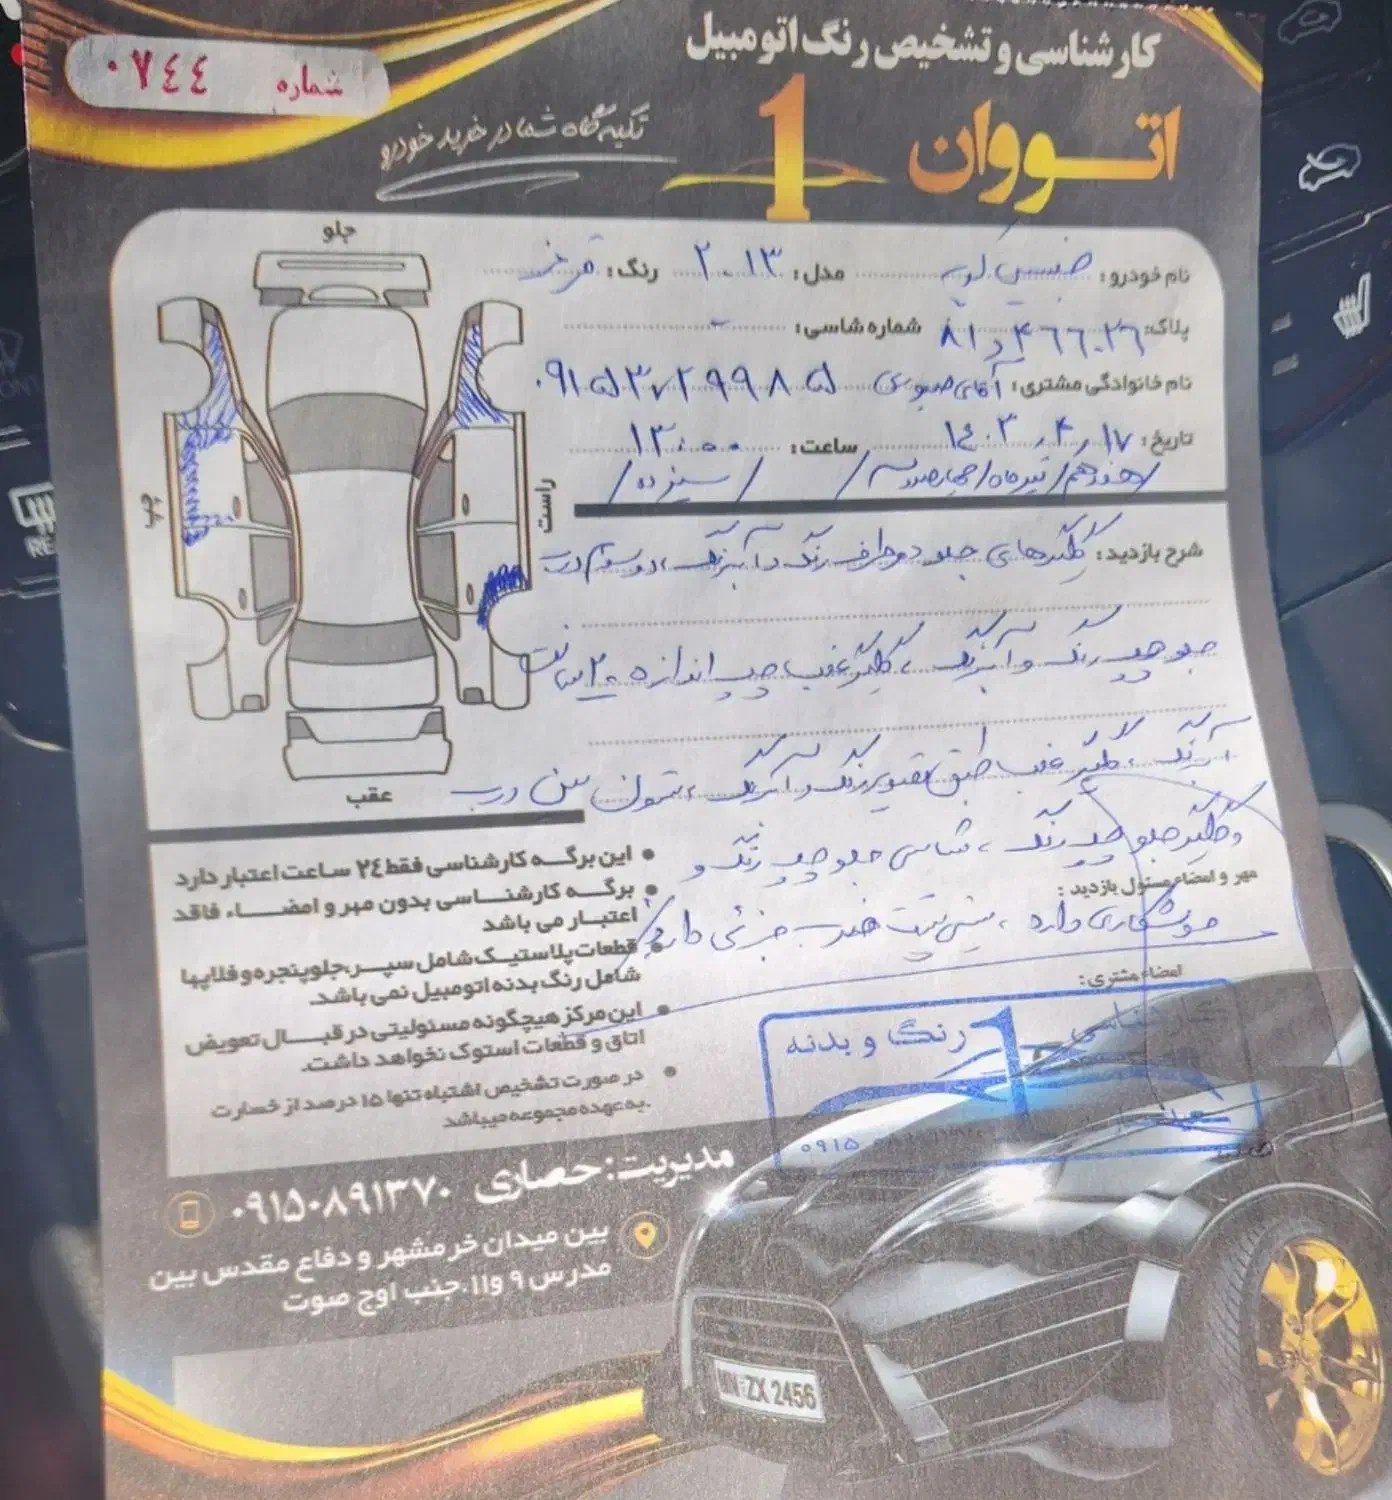 کارشناسی و تشخیص رنگ اتومبیل
شماره ۰۷۴۴
اتـــووان 1
تکیه گاه شما در خرید خودرو
نام خودرو: جنسیس کوپه مدل: ۲۰۱۳ رنگ: قرمز
پلاک: ۸۱ د ۴۶۶.۲۶ شماره شاسی: -
نام خانوادگی مشتری: آقای صبوری ۰۹۱۵۳۷۲۹۹۸۵
تاریخ: ۱۴۰۳/۴/۱۷ ساعت: ۱۳:۰۰
/هفدهم/تیرماه/چهارصدوسه/ /سیزده/
جلو
چپ
راست
عقب
شرح بازدید: گلگیرهای جلو دو طرف رنگ و آبرنگ، دو ستون درب
جلو چپ رنگ و آبرنگ، گلگیر عقب چپ اندازه ۲۰ سانت
آبرنگ، گلگیر عقب طبق تصویر رنگ و آبرنگ، ستون بین درب
و گلگیر جلو چپ رنگ، شاسی جلو چپ رنگ و
جوشکاری دارد، سینی پشت ضرب جزئی دارد
مهر و امضاء مسئول بازدید:
امضاء مشتری:
کارشناسی 1 رنگ و بدنه
۰۹۱۵
• این برگـــه کارشناسی فقط ۲۴ ساعت اعتبار دارد
• برگـــه کارشناسی بدون مهر و امضـــاء فاقد
اعتبار می باشد
• قطعات پلاستیک شامل سپر،جلوپنجره و فلاپها
شامل رنگ بدنه اتومبیل نمی باشد.
• این مرکز هیچگونه مسئولیتی در قبـــال تعویض
اتاق و قطعات استوک نخواهد داشت.
• در صورت تشخیص اشتباه تنها ۱۵ درصد از خسارت
به عهده مجموعه میباشد.
مدیریت: حصاری ۰۹۱۵۰۸۹۱۳۷۰
بین میدان خرمشهر و دفاع مقدس بین
مدرس ۹ و ۱۱. جنب اوج صوت
ZX 2456